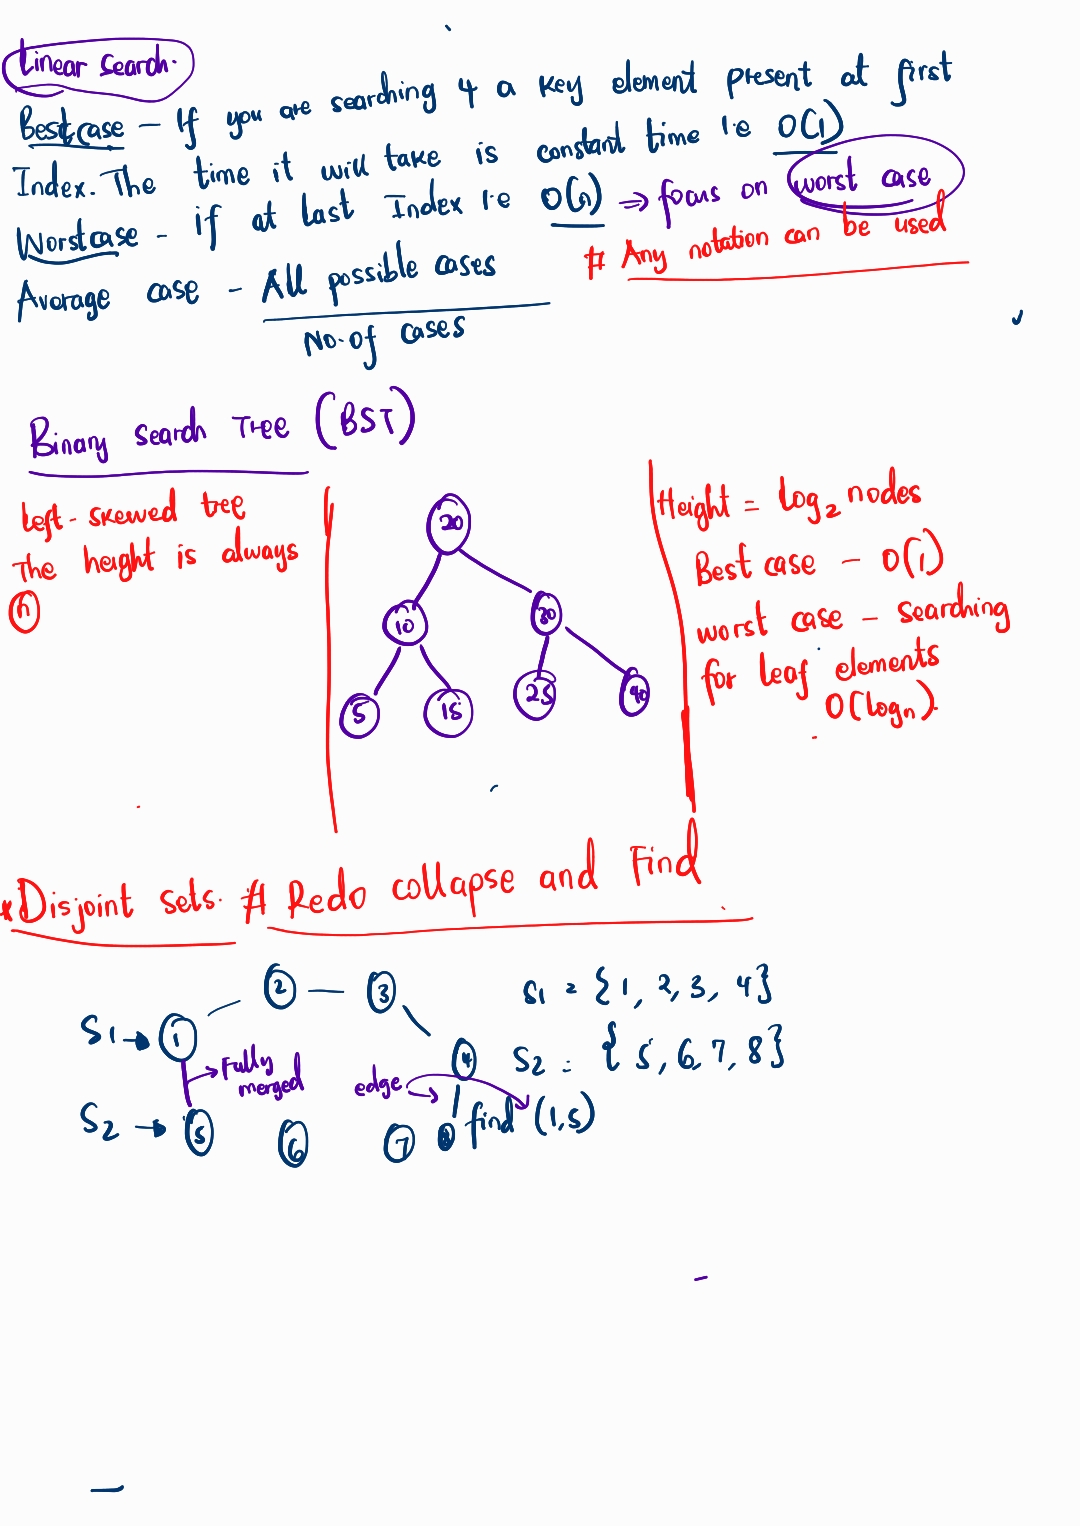 Linear Search.
Bestcase – If you are searching 4 a key element present at first
Index. The time it will take is constant time i.e O(1)
Worstcase – if at last Index i.e O(n) ⇒ focus on worst case
# Any notation can be used
Average case – All possible cases
No. of cases
Binary Search Tree (BST)
Left - skewed tree
The height is always
n
20
10
30
5
15
25
40
Height = log₂ nodes
Best case – O(1)
worst case – searching
for leaf elements
O(logn).
*Disjoint sets. # Redo collapse and Find
S1 → 1 2 3 4
S1 = {1, 2, 3, 4}
S2 = {5, 6, 7, 8}
Fully
merged
edge
S2 → 5 6 7 8
find (1,5)